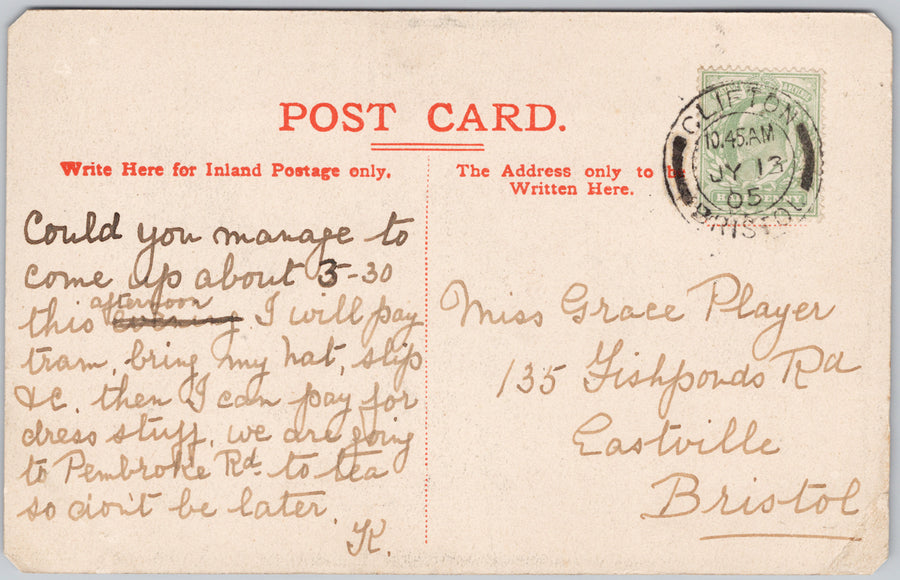 POST CARD.
Write Here for Inland Postage only.
The Address only to b
Written Here.
CLIFTON
10.45 AM
JY 13
05
BRISTOL
Could you manage to
come up about 3-30
this afternoon evening I will pay
tram, bring my hat, slip
&c. then I can pay for
dress stuff, we are going
to Pembroke Rd. to tea
so don't be later.
K.
Miss Grace Player
135 Fishponds Rd
Eastville
Bristol